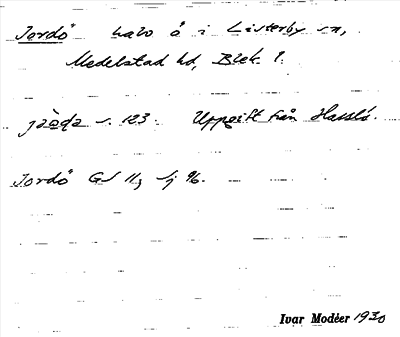 Jordö halv å i Listerby sn,
Medelstad hd, Blek. l.
s. 123. Uppgift från Hasslö.
Jordö GS 11, Sj 96.
Ivar Modéer 1930